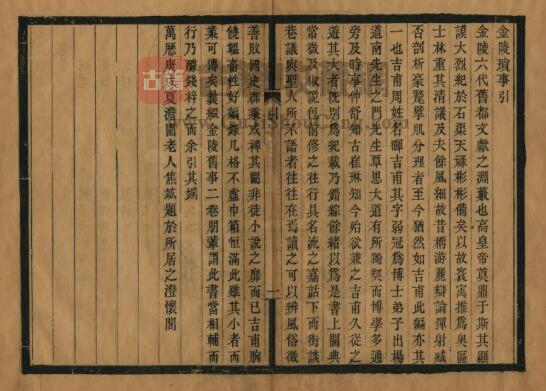 金陵瑣事引
金陵六代舊都文獻之淵藪也高皇帝奠鼎于斯其顯
謨大烈紀於石渠天祿彬彬備矣以故袁寓推為奧區
士林重其清議及夫餘風細故昔稱游麗辯論彈射臧
否剖析豪釐擘肌分理者至今猶然如吉甫此編亦其
一也吉甫周姓名暉吉甫其字弱冠為博士弟子出楊
道南先生之門先生覃思大道有所獨契而博學多通
旁及時事仲舒知古崔琳知今殆欲兼之吉甫久從之
遊其大者旣別為紀載乃錯綜餘緒以為是書上關典
常微及俶詭包前修之往行具名流之嘉話下而街談
巷議與聖人所不語者往往在焉讀之可以辨風俗徵
善敗國史郡乘或裨其闕非徒小說之靡而已吉甫胸
饒韞畜性好編錄几格不虛巾箱恒滿此雖其小者而
業可傳矣曩紱金陵舊事二卷朋輩謂此書當相輔而
行乃醵錢梓之而余引其耑
萬曆庚戌夏澹園老人焦竑題於所居之澄懷閣
引
一
古籍